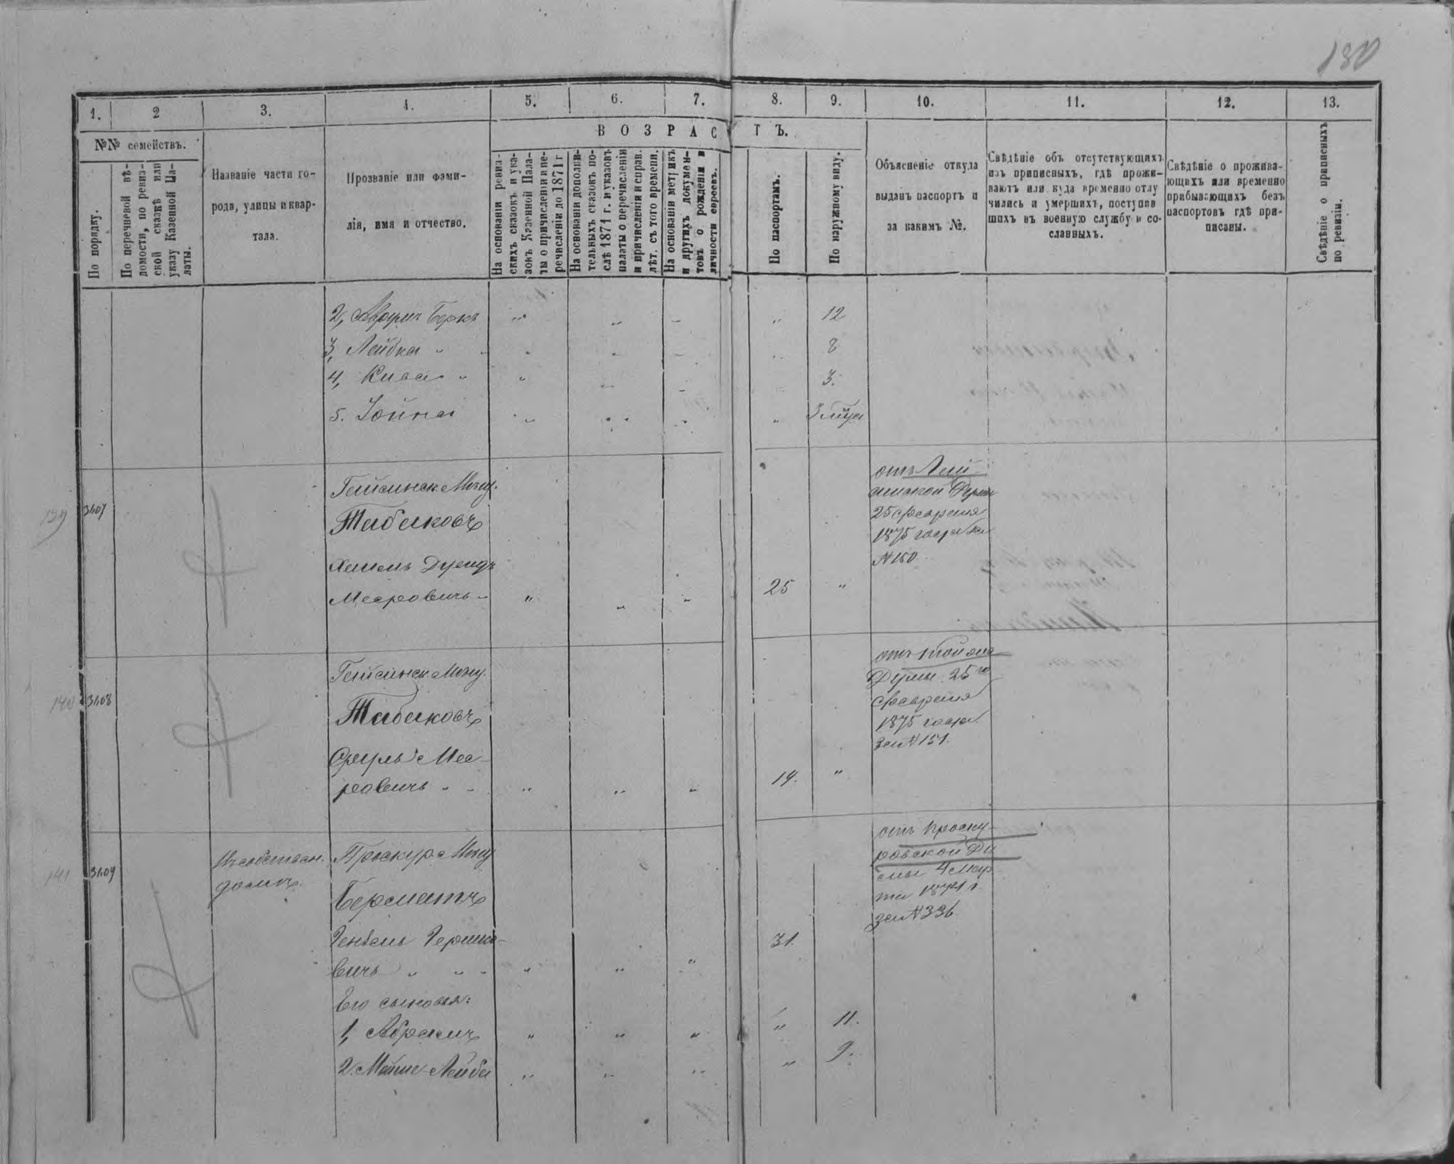 130
1.
2
3.
4.
5.
6.
7.
8.
9.
10.
11.
12.
13.
№№ семействъ.
По порядку.
По перечневой вѣ-
домости, по ревиз-
ской сказкѣ или
указу Казенной Па-
латы.
Названіе части го-
рода, улицы и квар-
тала.
Прозваніе или фами-
лія, имя и отчество.
ВОЗРАСТЪ.
На основаніи ревиз-
скихъ сказокъ и ука-
зовъ Казенной Пала-
ты о причисленіи и пе-
речисленіи до 1871 г
На основаніи дополни-
тельныхъ сказокъ по-
слѣ 1871 г. и указовъ
палаты о перечисленіи
и причисленіи и справ.
лѣт. съ того времени.
На основаніи метрикъ
и другихъ докумен-
товъ о рожденіи и
личности евреевъ.
По паспортамъ.
По наружному виду.
Объясненіе откуда
выданъ паспортъ и
за какимъ №.
Свѣдѣніе объ отсутствующихъ
изъ приписныхъ, гдѣ прожи-
ваютъ или куда временно отлу
чились и умершихъ, поступив
шихъ въ военную службу и со-
сланныхъ.
Свѣдѣніе о прожива-
ющихъ или временно
прибывающихъ безъ
паспортовъ гдѣ при-
писаны.
Свѣдѣніе о приписныхъ
по ревизіи.
2, Аврумъ Берко " " " " 12
3, Лейбка " " " " 8
4, Кива " " " " 3.
5. Іойна " " " "
139 3107
Гайсинск Мѣщ.
Табаковъ
Мееровичъ " " " 25 "
25 февраля
1875 года за
№ 150
140 3108
Гайсинск Мѣщ.
Табаковъ
Сруль Мее-
ровичъ " " " 19. "
отъ той же
Думы 25го
февраля
1875 года
за № 151.
141 3109
домъ
Проскур. Мѣщ
Берманъ
Гершко-
вичъ " " " 31.
Его сыновья:
1, Абрамъ " " " " 11.
2. Мойше-Лейба " " " " 9.
отъ Проску-
ровской Ду
мы 4 мар
та 1874 г.
за № 336